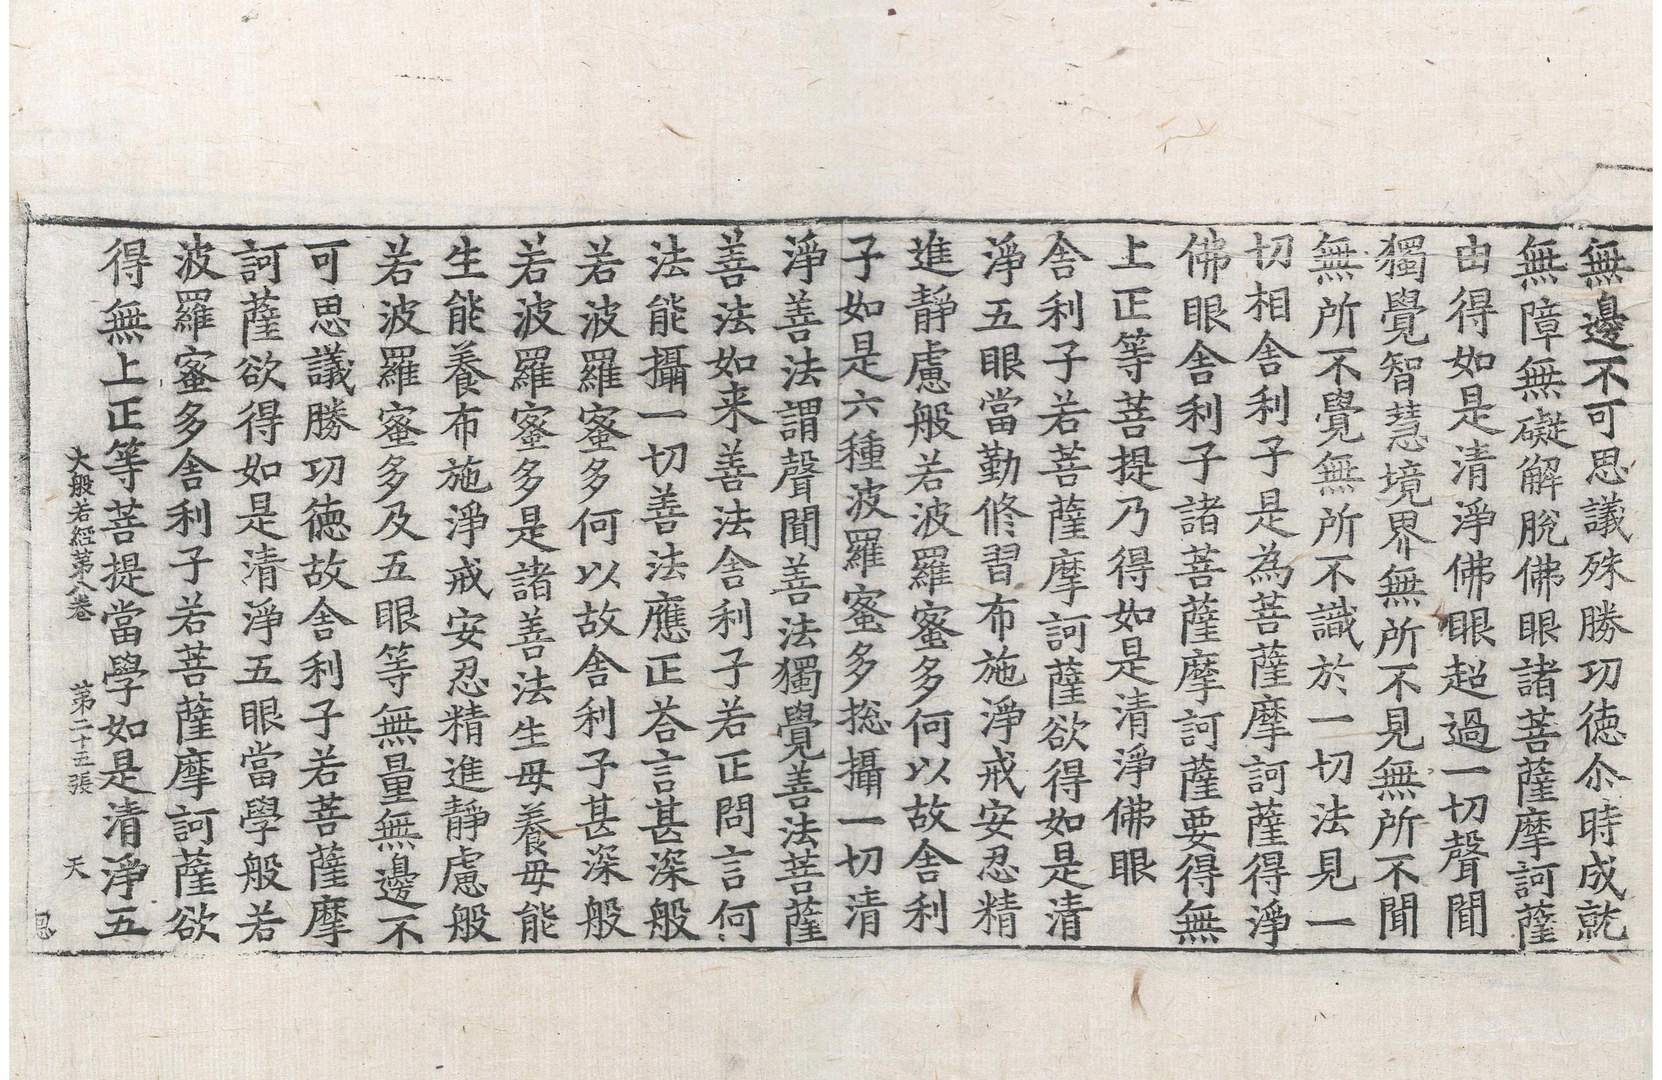 無邊不可思議殊勝功徳尒時成就
無障無礙解脫佛眼諸菩薩摩訶薩
由得如是清淨佛眼超過一切聲聞
獨覺智慧境界無所不見無所不聞
無所不覺無所不識於一切法見一
切相舍利子是為菩薩摩訶薩得淨
佛眼舍利子諸菩薩摩訶薩要得無
上正等菩提乃得如是清淨佛眼
舍利子若菩薩摩訶薩欲得如是清
淨五眼當勤修習布施淨戒安忍精
進靜慮般若波羅蜜多何以故舍利
子如是六種波羅蜜多捴攝一切清
淨善法謂聲聞善法獨覺善法菩薩
善法如来善法舍利子若正問言何
法能攝一切善法應正荅言甚深般
若波羅蜜多何以故舍利子甚深般
若波羅蜜多是諸善法生母養母能
生能養布施淨戒安忍精進靜慮般
若波羅蜜多及五眼等無量無邊不
可思議勝功徳故舍利子若菩薩摩
訶薩欲得如是清淨五眼當學般若
波羅蜜多舍利子若菩薩摩訶薩欲
得無上正等菩提當學如是清淨五
大般若經第八卷 第二十五張 天